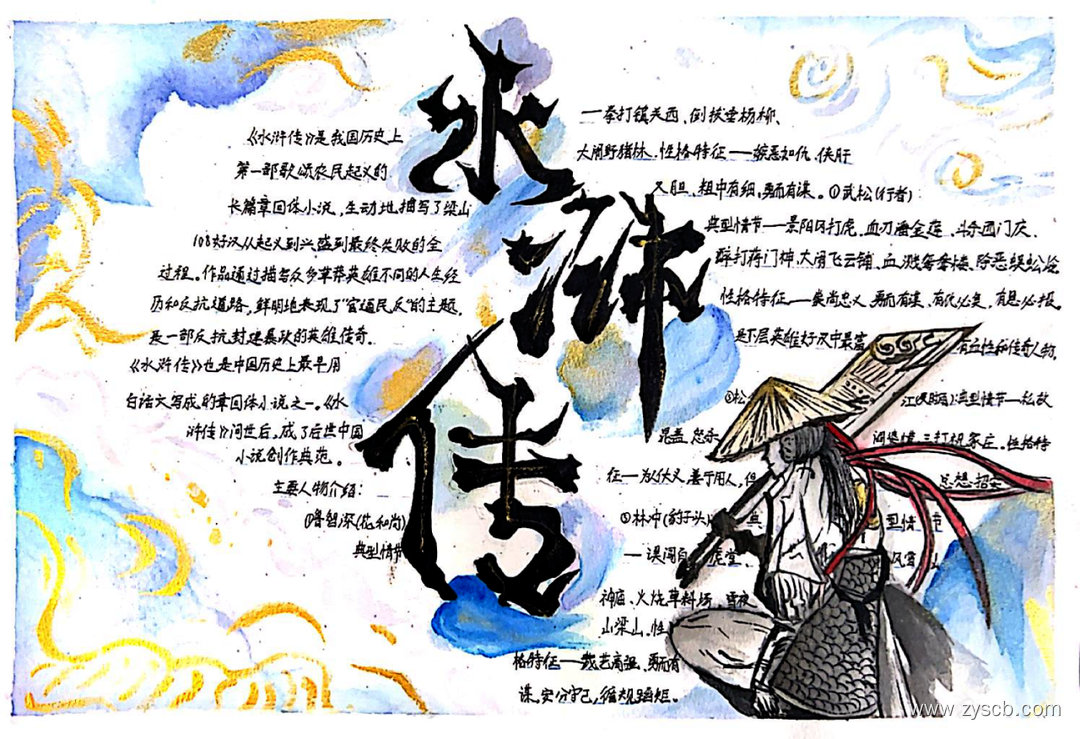 水浒传
《水浒传》是我国历史上
第一部歌颂农民起义的
长篇章回体小说,生动地描写了梁山
108好汉从起义到兴盛到最终失败的全
过程。作品通过描写众多草莽英雄不同的人生经
历和反抗道路,鲜明地表现了"官逼民反"的主题,
是一部反抗封建暴政的英雄传奇.
《水浒传》也是中国历史上最早用
白话文写成的章回体小说之一。《水
浒传》问世后,成了后世中国
小说创作典范。
主要人物介绍:
①鲁智深(花和尚)
典型情节
一拳打镇关西、倒拔垂杨柳、
大闹野猪林.性格特征——嫉恶如仇、侠肝
义胆、粗中有细,勇而有谋。①武松(行者):
典型情节——景阳冈打虎、血刃潘金莲、斗杀西门庆、
醉打蒋门神、大闹飞云铺、血溅鸳鸯楼、除恶蜈蚣岭
性格特征——崇尚忠义、勇而有谋、有仇必复、有恩必报,
是下层英雄好汉中最富 有血性和传奇人物,
江(及时雨):典型情节——私放
晁盖、怒杀 阎婆惜、三打祝家庄.性格特
征——为人仗义、善于用人,但 总想招安
⑤林冲(豹子头) 典型情节
——误闯白虎堂、 风雪山
神庙、火烧草料场、雪夜
山梁山.性
格特征——武艺高强、勇而有
谋,安分守己,循规蹈矩。
www.zyscb.com